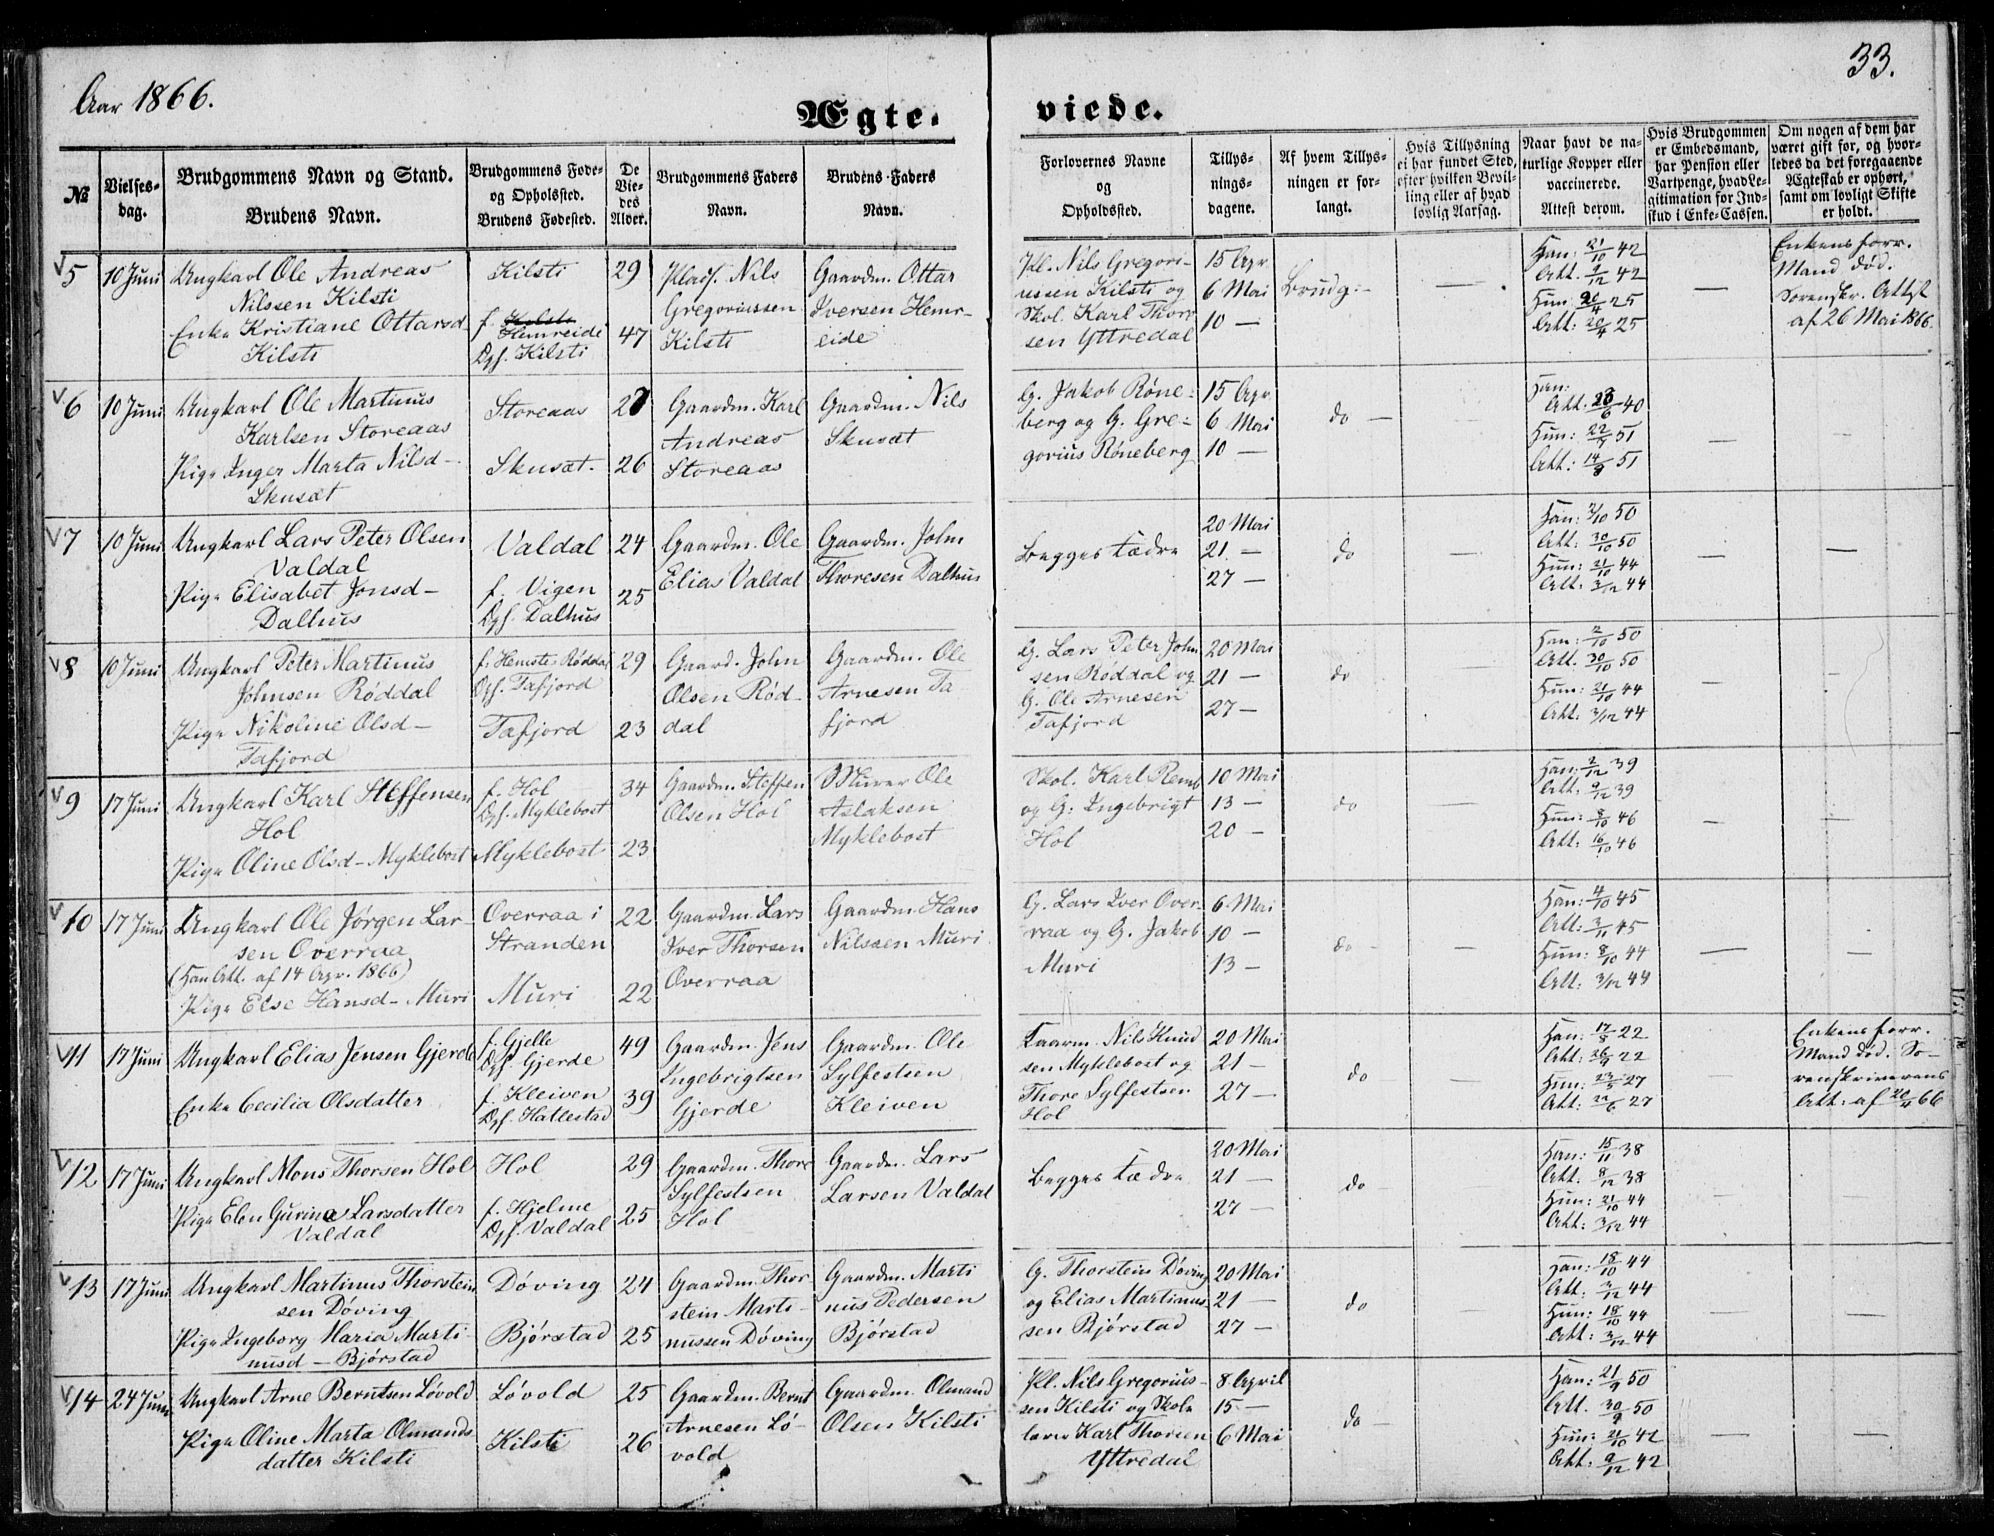 Aar 1866.
33.
Ægte-
viede.
№
Vielses-
dag.
Brudgommens Navn og Stand.
Brudens Navn.
Brudgommens Føde-
og Opholssted.
Brudens Fødested.
De
Vie-
des
Alder.
Brudgommens Faders
Navn.
Brudens Faders
Navn.
Forlovernes Navne
og
Opholdssted.
Tillys-
nings-
dagene.
Af hvem Tillys-
ningen er for-
langt.
Hvis Tillysning
ei har fundet Sted,
efter hvilken Bevil-
ling eller af hvad
lovlig Aarsag.
Naar havt de na-
turlige Kopper eller
vaccinerede.
Attest derom.
Hvis Brudgommen
er Embedsmand,
har Pension eller
Vartpenge, hvad Le-
gitimation for Ind-
skud i Enke-Cassen.
Om nogen af dem har
været gift for, og hvor-
ledes da det foregaaende
Ægteskab er ophørt,
samt om lovligt Skifte
er holdt.
5
10 Juni
Ungkarl Ole Andreas
Nilssen Kilsti
Enke Kristiane Ottarsd-
Kilsti
Kilsti
f. Kilsti
Hemreide
Opf. Kilsti
29
47
Plads. Nils
Gregoriussen
Kilsti
Gaardm. Ottar
Iversen Hemr-
eide
Pl. Nils Gregori-
ussen Kilsti og
Skol. Karl Thor-
sen Yttredal
15 Apr.
6 Mai
10 —
Brudg. —
—
Han: 21/10 42
Att. 9/12 42
Hun: 20/4 25
Att: 20/4 25
—
Enkens forr.
Mand død.
Sorenskr. Attst
af 26 Mai 1866.
6
10 Juni
Ungkarl Ole Martinus
Karlsen Storeaas
Pige Inger Marta Nilsd-
Skusæt
Storeaas
Skusæt.
27
26
Gaardm. Karl
Andreas
Storeaas
Gaardm. Nils
Skusæt
G. Jakob Røne-
berg og G. Gre-
gorius Røneberg
15 Apr.
6 Mai
10 —
do —
Han:
Att. 28/6 40
Hun: 22/7 51
Att: 14/8 51
—
—
7
10 Juni
Ungkarl Lars Peter Olsen
Valdal
Pige Elisabet Jonsd-
Dalhus
Valdal
f. Vigen
Opf. Dalhus
24
25
Gaardm. Ole
Elias Valdal
Gaardm. John
Thoresen Dalhus
Begges Fædre
20 Mai
21 —
27 —
do
—
Han: 2/10 50
Att: 30/10 50
Hun: 21/10 44
Att: 3/12 44
—
—
8
10 Juni
Ungkarl Peter Martinus
Johnsen Røddal
Pige Nikoline Olsd-
Tafjord
f. Hemste Røddal
Opf. Tafjord
Tafjord
29
23
Gaard. John
Olsen Rød-
dal
Gaardm. Ole
Arnesen Ta
fjord
G. Lars Peter John
sen Røddal og
G. Ole Arnesen
Tafjord
20 Mai
21 —
27 —
do
—
Han: 2/10 50
Att. 30/10 50
Hun: 21/10 44
Att. 3/12 44
—
—
9
17 Juni
Ungkarl Karl Steffensen
Hol
Pige Oline Olsd- Myklebost
f. Hol
Opf. Myklebost
Myklebost
34
23
Gaardm. Steffen
Olsen Hol
Murer Ole
Aslaksen
Myklebost
Skol. Karl Remb
og G. Ingebrigt
Hol
10 Mai
13 —
20 —
do
—
Han: 2/12 39
Att. 9/12 39
Hun: 8/10 46
Att: 16/10 46
—
—
10
17 Juni
Ungkarl Ole Jørgen Lar-
sen Overraa
(Han Att. af 14 Apr. 1866)
Pige Else Hansd- Muri
Overraa i
Stranden
Muri
22
22
Gaardm. Lars
Iver Thorsen
Overraa
Gaardm. Hans
Nilssen Muri
G. Lars Iver Over-
raa og G. Jakob
Muri
6 Mai
10 —
13 —
do —
—
Han: 4/10 45
Att: 3/11 45
Hun: 8/10 44
Att: 3/12 44
—
—
11
17 Juni
Ungkarl Elias Jensen Gjerde
Enke Cecilia Olsdatter
f. Gjelle
Opf. Gjerde
f. Kleiven
Opf. Hatlestad
49
39
Gaardm. Jens
Ingebrigtsen
Gjerde
Gaardm. Ole
Sylfestsen
Kleiven
Kaarm. Nils Knud
sen Myklebost og
Thore Sylfestsen
Hol
20 Mai
21 —
27 —
do
—
Han: 17/8 22
Att: 26/9 22
Hun: 23/5 27
Att: 22/6 27
—
Enkens forr.
Mand død. So-
renskriverens
Att: af 20/4 66
12
17 Juni
Ungkarl Mons Thorsen Hol
Pige Elen Gurine Larsdatter
Valdal
Hol
f. Hjelme
Opf. Valdal
29
25
Gaardm. Thore
Sylfestsen
Hol
Gaardm. Lars
Larsen Valdal
Begges Fædre
20 Mai
21 —
27 —
do
—
Han: 15/11 38
Att. 8/12 38
Hun: 21/10 44
Att: 3/12 44
—
—
13
17 Juni
Ungkarl Martinus Thorstein
sen Døving
Pige Ingeborg Maria Marti-
nusd- Bjørstad
Døving
Bjørstad
24
25
Gaardm. Thor-
stein Marti-
nussen Døving
Gaardm. Marti
nus Pedersen
Bjørstad
G. Thorstein Døving
og Elias Martinus-
sen Bjørstad
20 Mai
21 —
27 —
do
—
Han: 18/10 44
Att: 3/12 44
Hun: 18/10 44
Att: 3/12 44
—
—
14
24 Juni
Ungkarl Arne Berntsen Løvold
Pige Oline Marta Olmands
datter Kilsti
Løvold
Kilsti
25
26
Gaardm. Bernt
Arnesen Lø-
vold
Gaardm. Olmand
Olsen Kilsti
Pl. Nils Gregorius-
sen Kilsti og Skole
lærer Karl Thorsen
Yttredal
8 April
15 —
6 Mai
do —
—
Han: 21/9 50
Att. 30/9 50
Hun: 21/10 42
Att: 9/12 42
—
—